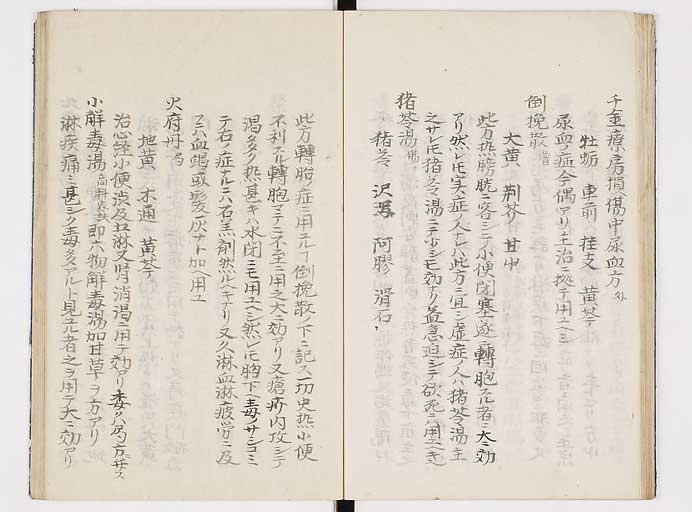 千金療房損傷中尿血方
牡蛎 車前 桂支 黄芩
尿血ノ症今偶アリ主治ニ拠テ用ユヘシ
倒挽散
大黄 荊芥 甘中
此方热膀胱ニ客シテ小便閉塞遂ニ轉胞スル者ニ大ニ効
アリ然レ𪜈実症ノ人ナレハ此方ニ宜シ虚症ノ人ハ猪苓湯主
之サレ𪜈猪苓湯ニテ少シモ効ナク益急迫シテ欲死ハ用ユヘキ也
猪苓湯
猪苓 沢瀉 阿膠 滑石
此方轉胞ノ症ニ用ユルヿ倒挽散ノ下ニ記ス功火热小便
不利スル轉胞マテニ不至ニ用之大ニ効アリ又瘡疥内攻シテ
渇多ク热甚キハ水閉ニモ用ユヘシ然レ𪜈胸下ヘ毒ヲサシコミ
テ右ノ症ナルニハ石羔剤然ルヘキナリ又久淋血淋疲労ニ及
フニハ血竭或髪灰ナト加ヘ用ユ
火府丹 局
地黄 木通 黄芩
治心経小便渋及五淋又腎消渇ニ用テ効アリ
小解毒湯 即六物解毒湯加甘草ヲ方アリ
淋疾痛ミ甚シク毒多クアルト見ユル者之ヲ用テ大ニ効アリ